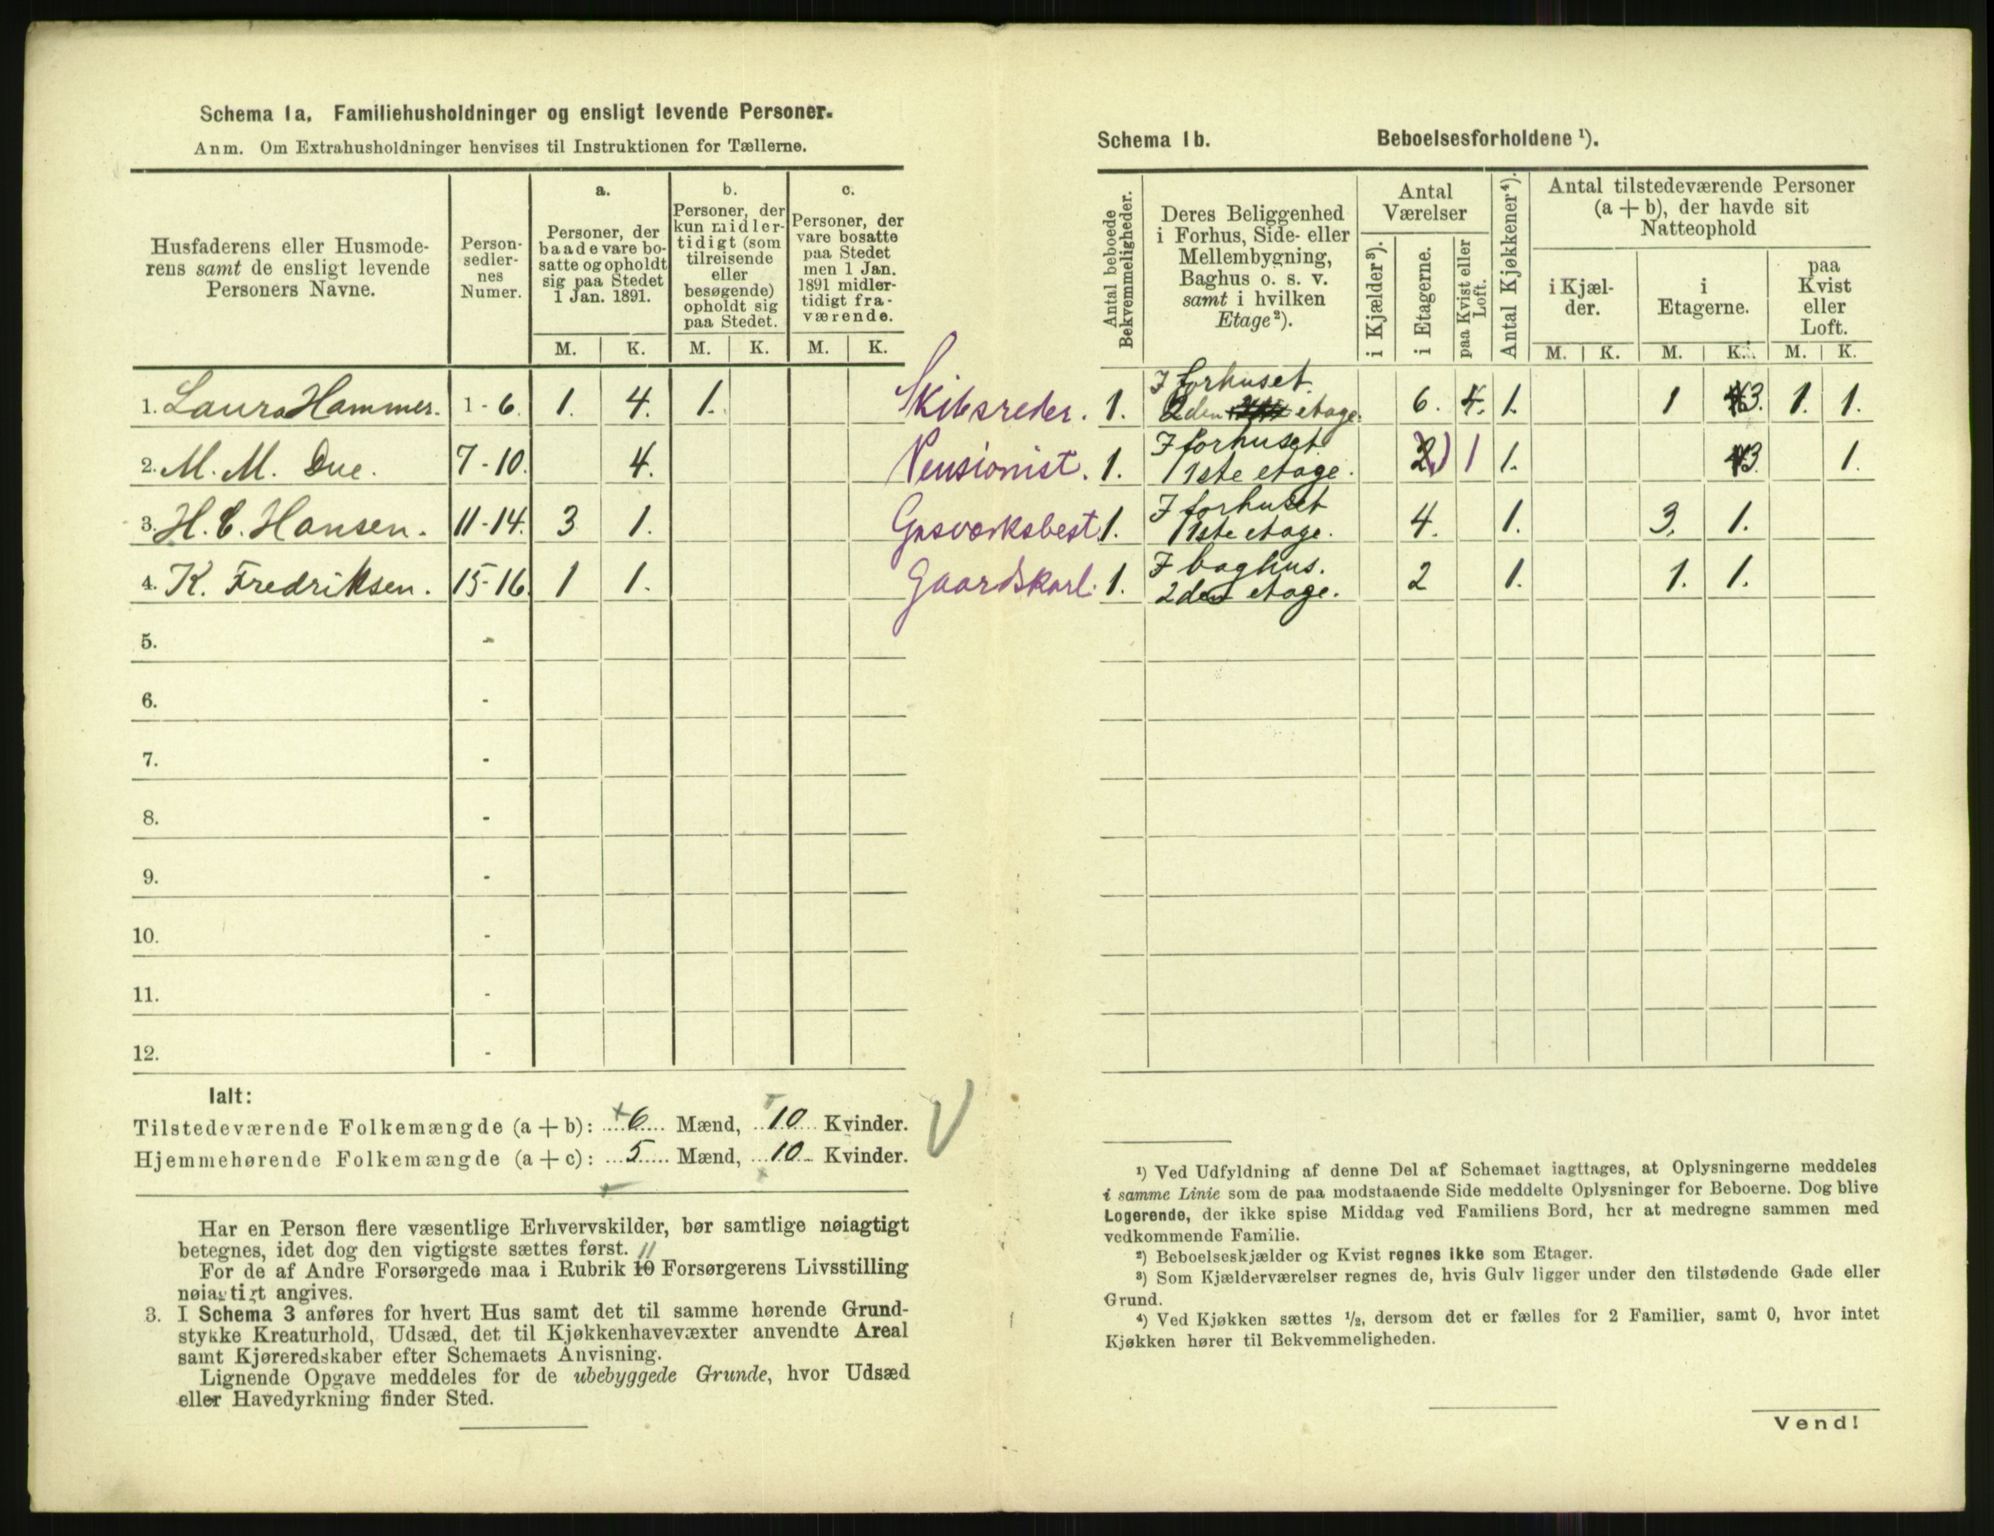 Schema 1a. Familiehusholdninger og ensligt levende Personer.
Anm. Om Extrahusholdninger henvises til Instruktionen for Tællerne.
Husfaderens eller Husmode-
rens samt de ensligt levende
Personers Navne.
Person-
sedler-
nes
Numer.
a.
Personer, der
baade vare bo-
satte og opholdt
sig paa Stedet
1 Jan. 1891.
b.
Personer, der
kun midler-
tidigt (som
tilreisende
eller
besøgende)
opholdt sig
paa Stedet.
c.
Personer, der
vare bosatte
paa Stedet
men 1 Jan.
1891 midler-
tidigt fra-
værende.
M. K. M. K. M. K.
1. Laura Hammer. 1 - 6. 1. 4. 1.
2. M. M. Due. 7 - 10. 4.
3. H. C. Hansen. 11 - 14. 3 1.
4. K. Fredriksen. 15 - 16. 1 1.
5. -
6. -
7. -
8. -
9. -
10. -
11. -
12. -
Ialt:
Tilstedeværende Folkemængde (a + b): 6 Mænd, 10 Kvinder.
Hjemmehørende Folkemængde (a + c): 5 Mænd, 10 Kvinder.
Har en Person flere væsentlige Erhvervskilder, bør samtlige nøiagtigt
betegnes, idet dog den vigtigste sættes først.
11
For de af Andre Forsørgede maa i Rubrik 10 Forsørgerens Livsstilling
nøiagtigt angives.
3. I Schema 3 anføres for hvert Hus samt det til samme hørende Grund-
stykke Kreaturhold, Udsæd, det til Kjøkkenhavevæxter anvendte Areal
samt Kjøreredskaber efter Schemaets Anvisning.
Lignende Opgave meddeles for de ubebyggede Grunde, hvor Udsæd
eller Havedyrkning finder Sted.
Schema 1b. Beboelsesforholdene ¹).
Antal beboede
Bekvemmeligheder.
Deres Beliggenhed
i Forhus, Side- eller
Mellembygning,
Baghus o. s. v.
samt i hvilken
Etage²).
Antal
Værelser
i Kjælder³).
i Etagerne.
paa Kvist eller
Loft.
Antal Kjøkkener⁴).
Antal tilstedeværende Personer
(a + b), der havde sit
Natteophold
i Kjæl-
der.
i
Etagerne.
paa
Kvist
eller
Loft.
M. K. M. K. M. K.
Skibsreder. 1. I forhuset.
2den etage. 6. 4. 1. 1 3. 1. 1.
Pensionist. 1. I forhuset.
1ste etage. 2 1 1. 3. 1.
Gasværksbest. 1. I forhuset
1ste etage. 4. 1. 3. 1.
Gaardskarl. 1. I baghus.
2den etage. 2 1. 1. 1.
¹) Ved Udfyldning af denne Del af Schemaet iagttages, at Oplysningerne meddeles
i samme Linie som de paa modstaaende Side meddelte Oplysninger for Beboerne. Dog blive
Logerende, der ikke spise Middag ved Familiens Bord, her at medregne sammen med
vedkommende Familie.
²) Beboelseskjælder og Kvist regnes ikke som Etager.
³) Som Kjælderværelser regnes de, hvis Gulv ligger under den tilstødende Gade eller
Grund.
⁴) Ved Kjøkken sættes ¹/₂, dersom det er fælles for 2 Familier, samt 0, hvor intet
Kjøkken hører til Bekvemmeligheden.
Vend!